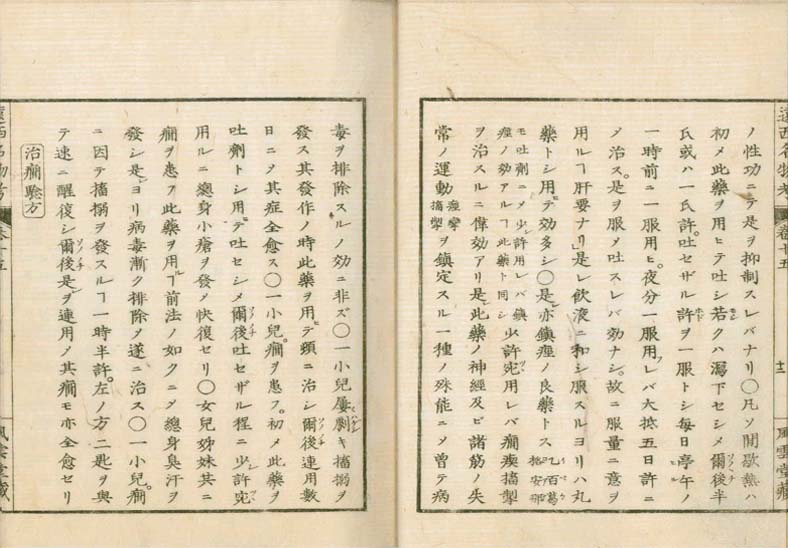 遠西名物考 卷十五 十二 風雲堂藏
ノ性功ニテ是ヲ抑制スレバナリ〇凡ソ間歇熱ハ
初メ此藥ヲ用ヒテ吐シ若クハ瀉下セシメ爾後半
氏或ハ一氏許。吐セザル許ヲ一服トシ每日亭午ノ
一時前ニ一服用ヒ。夜分一服用フレバ大抵五日許ニ
〆治ス。是ヲ服〆吐スレバ効ナシ。故ニ服量ニ意ヲ
用ルヿ肝要ナリ」是レ飲液ニ和シ服スルヨリハ丸
藥トシ用テ効多シ〇是亦鎮痙ノ良藥トス 乞百葛格安那
モ吐劑ニ〆少許用レバ鎮痙ノ効アルヿ此藥ト同シ 少許宛用レバ癇瘈搐掣
ヲ治スルニ偉効アリ是此藥ノ神經及ビ諸筋ノ失
常ノ運動 痙攣搐掣 ヲ鎮定スル一種ノ殊能ニ〆曾テ病
毒ヲ排除スルノ効ニ非ズ〇一小兒屢劇キ搐搦ヲ
發ス其發作ノ時此藥ヲ用テ頓ニ治シ爾後連用數
日ニ〆其症全愈ス〇一小兒。癇ヲ患フ。初メ此藥ヲ
吐劑トシ用テ吐セシメ爾後吐セザル程ニ少許宛
用ルニ總身小瘡ヲ發〆快復セリ〇女兒姊妹共ニ
癇ヲ患フ此藥ヲ用ルヿ前法ノ如クニ〆總身臭汗ヲ
發シ是ヨリ病毒漸ク排除〆遂ニ治ス〇一小兒。癇
ニ因テ搐搦ヲ發スルヿ一時半許。左ノ方二匙ヲ與
テ速ニ醒復シ爾後是ヲ連用〆其癇モ亦全愈セリ
治癇驗方
遠西名物考 卷十五 風雲堂藏